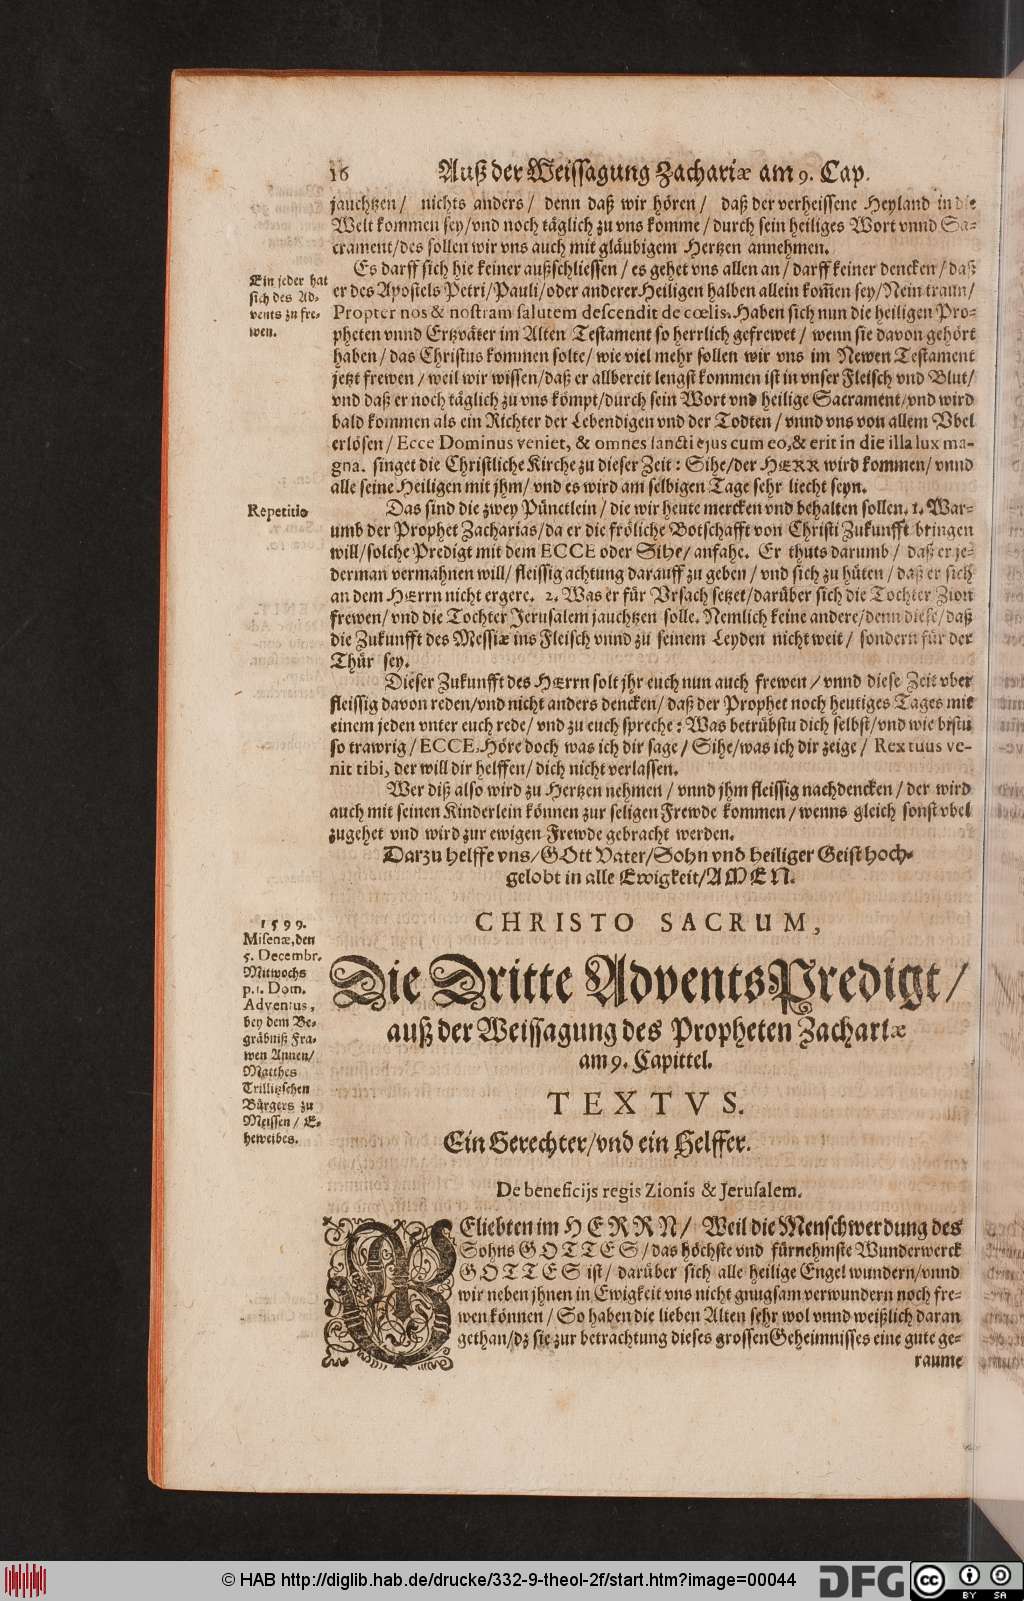 16 Auß der Weissagung Zachariæ am 9. Cap.
jauchtzen / nichts anders / denn daß wir hören / daß der verheissene Heyland in die
Welt kommen sey/vnd noch täglich zu vns komme / durch sein heiliges Wort vnnd Sa-
crament/des sollen wir vns auch mit gläubigem Hertzen annehmen.
Ein jeder hat
sich des Ad-
vents zu fre-
wen.
Es darff sich hie keiner außschliessen / es gehet vns allen an / darff keiner dencken / daß
er des Apostels Petri/Pauli/oder anderer Heiligen halben allein kom̃en sey/Nein traun/
Propter nos & nostram salutem descendit de cœlis. Haben sich nun die heiligen Pro-
pheten vnnd Ertzväter im Alten Testament so herrlich gefrewet / wenn sie davon gehört
haben / das Christus kommen solte/ wie viel mehr sollen wir vns im Newen Testament
jetzt frewen / weil wir wissen/daß er allbereit lengst kommen ist in vnser Fleisch vnd Blut/
vnd daß er noch täglich zu vns kömpt/durch sein Wort vnd heilige Sacrament/vnd wird
bald kommen als ein Richter der Lebendigen vnd der Todten / vnnd vns von allem Vbel
erlösen / Ecce Dominus veniet, & omnes sancti ejus cum eo,& erit in die illa lux ma-
gna. singet die Christliche Kirche zu dieser Zeit : Sihe/der HERR wird kommen/ vnnd
alle seine Heiligen mit jhm/ vnd es wird am selbigen Tage sehr liecht seyn.
Repetitio
Das sind die zwey Pünctlein / die wir heute mercken vnd behalten sollen. 1. War-
umb der Prophet Zacharias/da er die fröliche Botschafft von Christi Zukunfft bringen
will/solche Predigt mit dem ECCE oder Sihe/ anfahe. Er thuts darumb / daß er je-
derman vermahnen will/ fleissig achtung darauff zu geben / vnd sich zu hüten / daß er sich
an dem HErrn nicht ergere. 2. Was er für Vrsach setzet/darüber sich die Tochter Zion
frewen/ vnd die Tochter Jerusalem jauchtzen solle. Nemlich keine andere/denn diese/daß
die Zukunfft des Messiæ ins Fleisch vnnd zu seinem Leyden nicht weit / sondern für der
Thür sey.
Dieser Zukunfft des HErrn solt jhr euch nun auch frewen / vnnd diese Zeit vber
fleissig davon reden/vnd nicht anders dencken/ daß der Prophet noch heutiges Tages mit
einem jeden vnter euch rede/ vnd zu euch spreche : Was betrübstu dich selbst/vnd wie bistu
so trawrig / ECCE, Höre doch was ich dir sage / Sihe/was ich dir zeige / Rex tuus ve-
nit tibi, der will dir helffen/ dich nicht verlassen.
Wer diß also wird zu Hertzen nehmen / vnnd jhm fleissig nachdencken / der wird
auch mit seinen Kinderlein können zur seligen Frewde kommen / wenns gleich sonst vbel
zugehet vnd wird zur ewigen Frewde gebracht werden.
Darzu helffe vns/ GOtt Vater/Sohn vnd heiliger Geist hoch-
gelobt in alle Ewigkeit/AMEN.
1599.
Misenæ, den
5. Decembr.
Mitwochs
p.1. Dom.
Adventus,
bey dem Be-
gräbniß Fra-
wen Annen/
Matthes
Trillitzschen
Bürgers zu
Meissen / E-
heweibes.
CHRISTO SACRUM,
Die Dritte AdventsPredigt/
auß der Weissagung des Propheten Zachariæ
am 9. Capittel.
TEXTVS.
Ein Gerechter/vnd ein Helffer.
De beneficijs regis Zionis & Jerusalem.
GEliebten im HERRN/ Weil die Menschwerdung des
Sohns GOTTES/das höchste vnd fürnehmste Wunderwerck
GOTTES ist/ darüber sich alle heilige Engel wundern/vnnd
wir neben jhnen in Ewigkeit vns nicht gnugsam verwundern noch fre-
wen können / So haben die lieben Alten sehr wol vnnd weißlich daran
gethan/dz sie zur betrachtung dieses grossen Geheimnisses eine gute ge-
raume
© HAB http://diglib.hab.de/drucke/332-9-theol-2f/start.htm?image=00044
DFG
cc BY SA